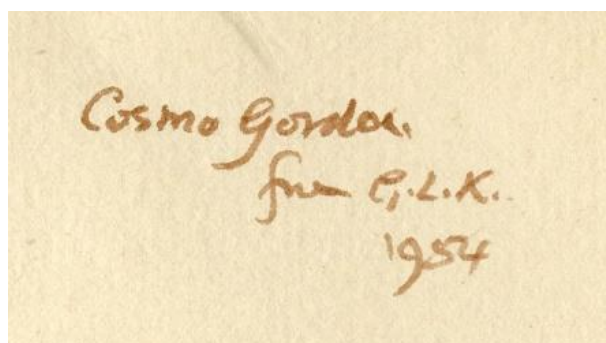 Cosmo Gordon.
from G.L.K.
1954